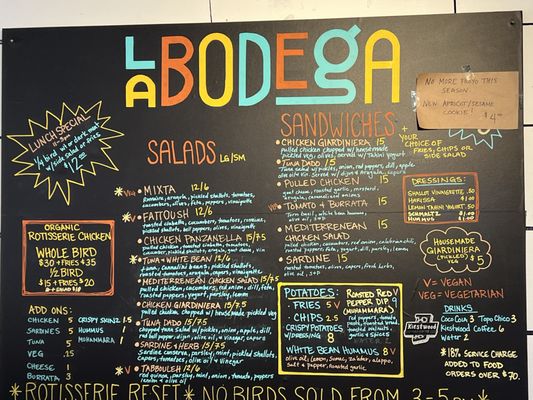 LA BODEGA
NO MORE POZO THIS
SEASON
NEW APRICOT/SESAME
COOKIE! $4
LUNCH SPECIAL
11-2
1/2 bird w/or dark meat
w/ side salad or fries
$12
SALADS LG/SM
MIXTA 12/6
Romaine, arugula, pickled shallots, tomatoes,
cucumbers, olives, feta, peppers, vinaigrette
FATTOUSH 12/6
cucumbers, tomatoes, romaine,
pickled shallots, bell peppers, olives, vinaigrette
CHICKEN PANZANELLA 15/7.5
TUNA & WHITE BEAN 12/6
cannellini beans, pickled shallots,
MEDITERRANEAN CHICKEN SALAD 15/7.5
pulled chicken, cucumbers, red onion, dill, feta,
roasted peppers, yogurt, parsley, lemon
CHICKEN GIARDINIERA 15/7.5
pulled chicken chopped w/ housemade pickled veg
TUNA DADO 15/7.5
Tuna salad chopped w/ pickles, onion, apple, dill,
red bell pepper, olive oil & vinegar, capers
SARDINE & HERB 15/7.5
Sardine conserva, parsley, mint, pickled shallots,
capers, tomatoes, olive oil & vinegar
TABBOULEH 12/6
red quinoa, parsley, mint, onion, tomato, peppers
lemon & olive oil
SANDWICHES
+ YOUR CHOICE OF
FRIES, CHIPS OR
SIDE SALAD
CHICKEN GIARDINIERA 15
pulled chicken chopped w/ housemade
pickled veg, olives, served w/ Tahini yogurt
TUNA DADO 15
Tuna salad w/ pickles, onion, red peppers, dill, apple
PULLED CHICKEN 15
goat cheese, roasted garlic, mustard,
arugula, caramelized onions
TOMATO & BURRATA 15
MEDITERRANEAN 15
CHICKEN SALAD
pulled chicken, cucumber, red onion, calabrian chili,
roasted peppers, feta, yogurt, dill, parsley, lemon
SARDINE 15
roasted tomatoes, olives, capers, fresh herbs,
DRESSINGS:
SHALLOT VINAIGRETTE .50
HARISSA $1.00
LEMON TAHINI YOGURT .50
SCHMALTZ $1.00
HUMMUS $1.00
HOUSEMADE
GIARDINIERA
(PICKLED
VEG) $5
ORGANIC
ROTISSERIE CHICKEN
WHOLE BIRD
$30 + FRIES $35
1/2 BIRD
$15 + FRIES $20
ADD ONS:
CHICKEN 5
SARDINES 5
TUNA 5
VEG .25
CHEESE 1
BURRATA 3
HUMMUS
MUHAMMARA 1
POTATOES:
FRIES 5 V
CHIPS 2.5
CRISPY POTATOES
W/DRESSING 8
ROASTED RED V
PEPPER DIP 9
(MUHAMMARA)
WHITE BEAN HUMMUS 8 V
salt & pepper, roasted garlic
V = VEGAN
VEG = VEGETARIAN
DRINKS
Coco Coco 3 Topo Chico 3
Kiestwood Coffee 6
Water 2
Kiestwood
*18% SERVICE CHARGE
ADDED TO FOOD
ORDERS OVER $70.
*ROTISSERIE RESET* NO BIRDS SOLD FROM 3-5pm*